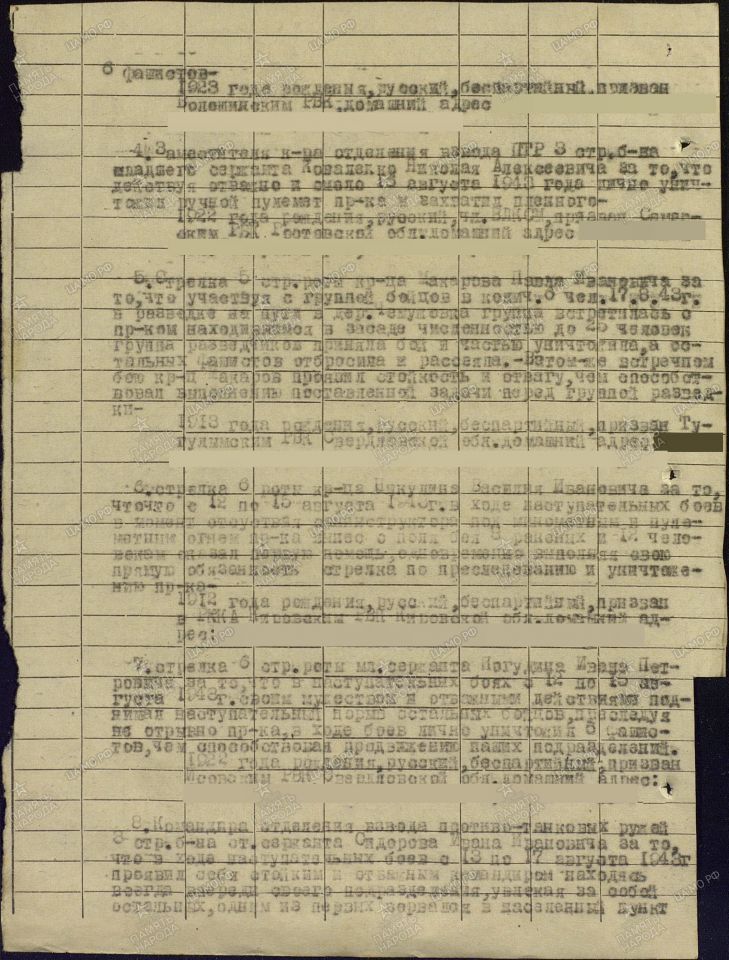 6 фашистов-
1923 года рождения,русский,беспартийный.призван
РВК.домашний адрес
4.Заместителя к-ра отделения взвода ПТР 3 стр.б-на
младшего сержанта Коваленко Николая Алексеевича за то,что
действуя отважно и смело 13 августа 1943 года лично унич-
тожил ручной пулемет пр-ка и захватил пленного-
1922 года рождения,русский,чл.ВЛКСМ,призван
ским РВК Ростовской обл.домашний адрес
5.Стрелка 5 стр.роты кр-ца Макарова Павла Ивановича за
то,что участвуя с группой бойцов в колич.6 чел.17.8.43г.
в разведке на пути в дер. группа встретилась с
пр-ком находившимся в засаде численностью до 25 человек
группа разведчиков приняла бой и частью уничтожила,а ос-
тальных фашистов отбросила и рассеяла.-Втом-же встречном
бою кр-ц Макаров проявил стойкость и отвагу,чем способст-
вовал выполнению поставленной задачи перед группой развед-
ки-
1913 года рождения,русский,беспартийный,призван Ту-
гулымским РВК Свердловской обл.домашний адрес
6.стрелка 6 роты кр-ца Василия Ивановича за то,
что с 12 по 15 августа 1943г.в ходе наступательных боев
в момент отсутствия санинструктора под минометным и пуле-
метным огнем пр-ка вынес с поля боя 8 раненых и 12 чело-
векам оказал первую помощь,одновременно выполняя свою
прямую обязанность стрелка по преследованию и уничтоже-
нию пр-ка-
1912 года рождения,русский,беспартийный,призван
в РККА Кировским РВК Кировской обл.домашний ад-
рес:
7.стрелка 6 стр.роты мл.сержанта Погудина Ивана Пет-
ровича за то,что в наступательных боях с 12 по 15 ав-
густа 1943 г.своим мужеством и отважными действиями под-
нимал наступательный порыв остальных бойцов,преследуя
не отрывно пр-ка,в ходе боев лично уничтожил 6 фашис-
тов,чем способствовал продвижению наших подразделений.
1922 года рождения,русский,беспартийный,призван
РВК Свердловской обл.домашний адрес:
8.Командира отделения взвода противо-танковых ружей
3 стр.б-на ст.сержанта Сидорова Ивана Ивановича за то,
что в ходе наступательных боев с 13 по 17 августа 1943г
проявил себя стойким и отважным командиром находясь
всегда впереди своего подразделения,увлекая за собой
остальных,одним из первых ворвался в населенный пункт